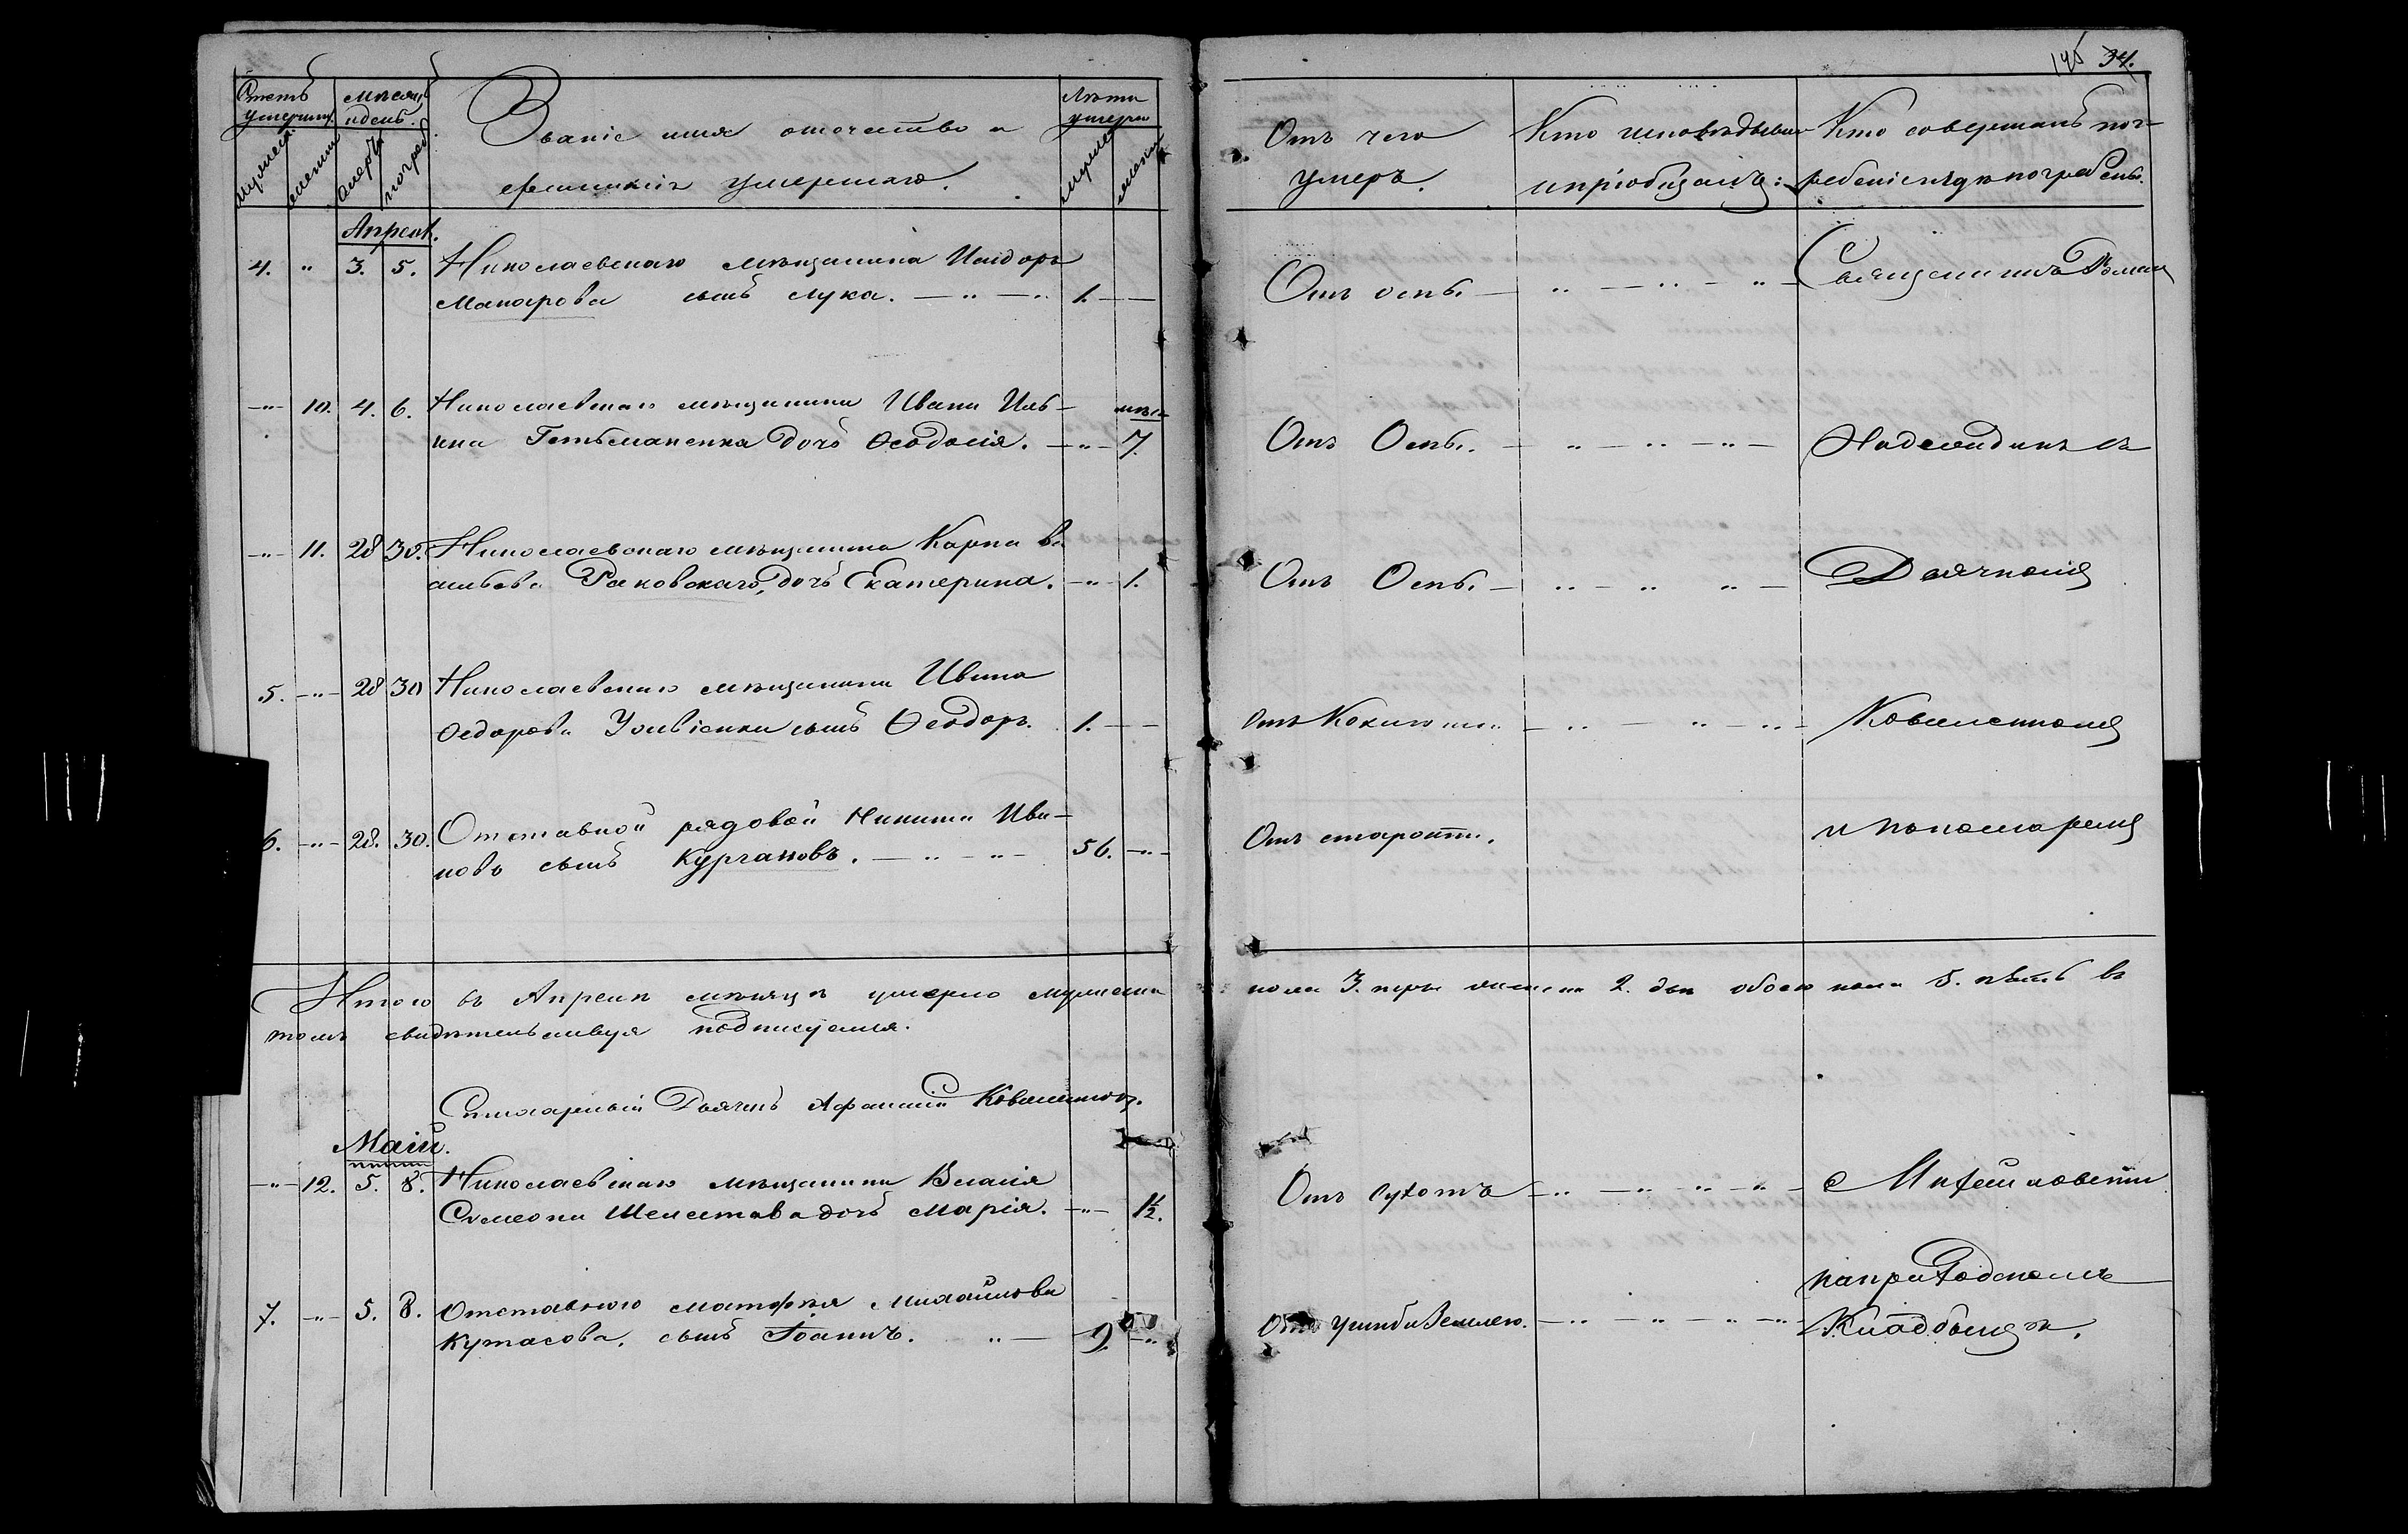 145 34.
Счетъ умершихъ. мѣсяцъ и день. Званіе имя отечество и Лѣта умерш
мужеска женска умеръ погреб. фамилія умершаго. мужеска женска
Отъ чего умеръ. Кто исповѣдывалъ и пріобщалъ: Кто совершалъ пог-
ребеніе и гдѣ погребены.
Апрель.
4. " 3. 5. Николаевскаго мѣщанина Исидора
Макарова сынъ Лука. — " — " 1. — Отъ оспы. — Священникъ Роман
— " — 10. 4. 6. Николаевскаго мѣщанина Ивана Иль- мѣс
ина Гетьманенка дочь Ѳеодосія. — " — 7. Отъ Оспы. —
— " — 11. 28 30. Николаевскаго мѣщанина Карпа Ва
сильева Раковскаго, дочь Екатерина. — " — 1. Отъ Оспы. — Дьячкомъ
5. — " — 28 30 Николаевскаго мѣщанина Ивана
Ѳедорова сынъ Ѳеодоръ. 1. — — Отъ Коклюша — Ковалевскимъ
6. — " — 28. 30. Отставной рядовой Никита Ива-
новъ сынъ Кургановъ. — " — " — 56. — " — Отъ старости. и пономаремъ
Итого въ Апрелѣ мѣсяцѣ умерло мужеска пола 3. три женска 2. два обоего пола 5. пять въ
томъ свидѣтельствуя подписуемся.
Дьячекъ Афанасій
Маій.
— " — 12. 5. 8. Николаевскаго мѣщанина Власія
Симеона Шелестова дочь Марія. — " — 1½. Отъ сухотъ —
7. — " — 5. 8. Отставного Матфѣя Михайлова
Кутасова, сынъ Іоаннъ. " — 9. — " Отъ Землею. — на приходскомъ
Кладбищѣ.